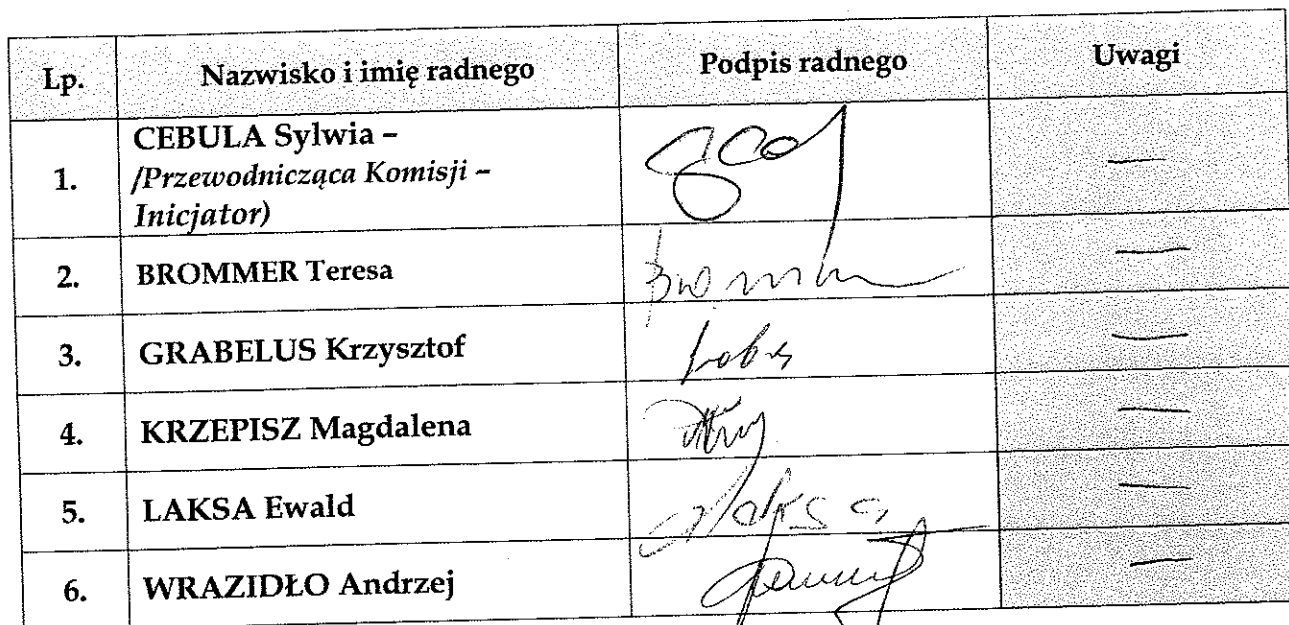 Lp. Nazwisko i imię radnego Podpis radnego Uwagi
CEBULA Sylwia –
1. /Przewodnicząca Komisji – —
Inicjator)
2. BROMMER Teresa —
3. GRABELUS Krzysztof —
4. KRZEPISZ Magdalena —
5. LAKSA Ewald Laksa —
6. WRAZIDŁO Andrzej —